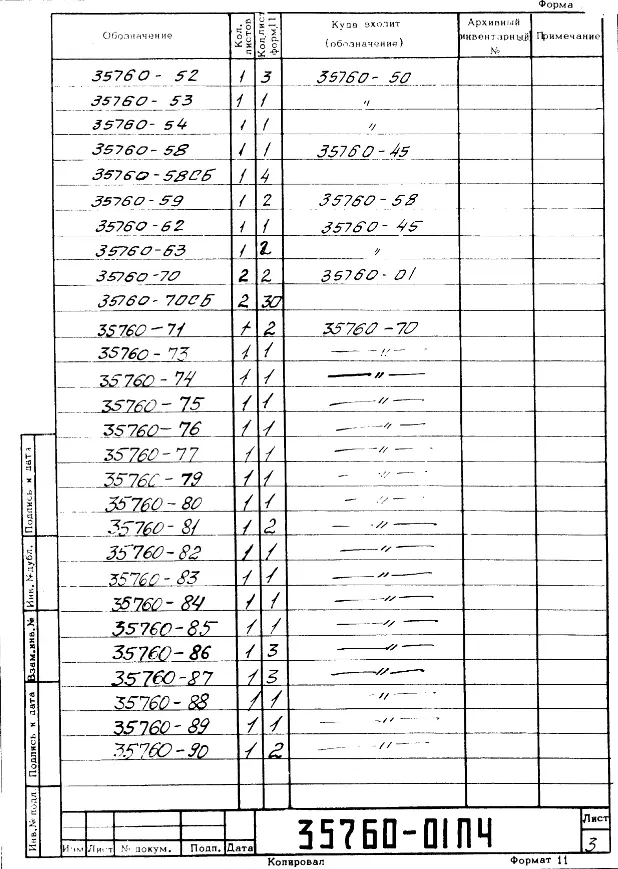 Форма
Обозначение | Кол. листов | Кол.лист форм.11 | Куда входит (обозначение) | Архивный инвентарный № | Примечание
35760- 52 | 1 | 3 | 35760- 50
35760- 53 | 1 | 1 | "
35760- 54 | 1 | 1 | "
35760-58 | 1 | 1 | 35760-45
35760-58СБ | 1 | 4
35760-59 | 1 | 2 | 35760-58
35760-62 | 1 | 1 | 35760-45
35760-63 | 1 | 2 | "
35760-70 | 2 | 2 | 35760-01
35760-70СБ | 2 | 30
35760-71 | 1 | 2 | 35760-70
35760-73 | 1 | 1 | —"—
35760-74 | 1 | 1 | —"—
35760-75 | 1 | 1 | —"—
35760-76 | 1 | 1 | —"—
35760-77 | 1 | 1 | —"—
35760-79 | 1 | 1 | —"—
35760-80 | 1 | 1 | —"—
35760-81 | 1 | 2 | —"—
35760-82 | 1 | 1 | —"—
35760-83 | 1 | 1 | —"—
35760-84 | 1 | 1 | —"—
35760-85 | 1 | 1 | —"—
35760-86 | 1 | 3 | —"—
35760-87 | 1 | 3 | —"—
35760-88 | 1 | 1 | —"—
35760-89 | 1 | 1 | —"—
35760-90 | 1 | 2 | —"—
Подпись и дата
Инв. № дубл.
Взам.инв.№
Подпись и дата
Инв.№ подл.
Изм Лист № докум. Подп. Дата
35760-01П4
Лист
3
Копировал
Формат 11